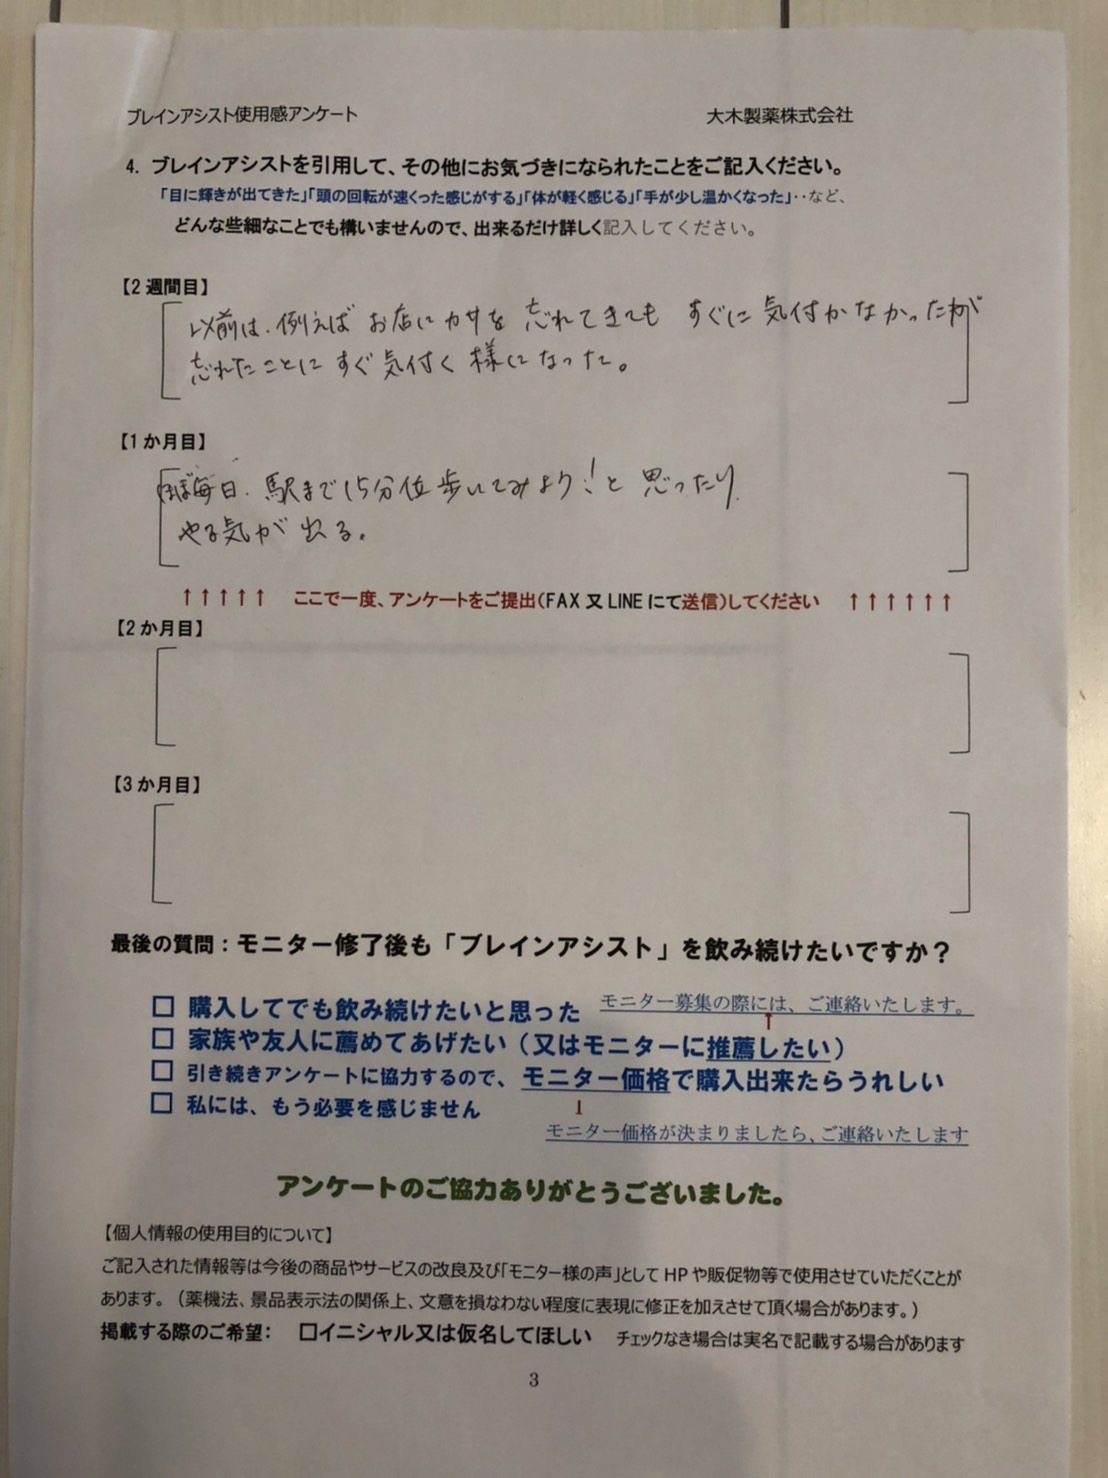 ブレインアシスト使用感アンケート 大木製薬株式会社
4. ブレインアシストを引用して、その他にお気づきになられたことをご記入ください。
「目に輝きが出てきた」「頭の回転が速くった感じがする」「体が軽く感じる」「手が少し温かくなった」‥など、
どんな些細なことでも構いませんので、出来るだけ詳しく記入してください。
【2週間目】
以前は、例えばお店にカサを忘れてきてもすぐに気付かなかったが
忘れたことにすぐ気付く様になった。
【1か月目】
ほぼ毎日、駅まで15分位歩いてみよう!と思ったり、
やる気が出る。
↑↑↑↑↑ ここで一度、アンケートをご提出(FAX又LINEにて送信)してください ↑↑↑↑↑↑
【2か月目】
【3か月目】
最後の質問:モニター修了後も「ブレインアシスト」を飲み続けたいですか?
□ 購入してでも飲み続けたいと思った モニター募集の際には、ご連絡いたします。
□ 家族や友人に薦めてあげたい(又はモニターに推薦したい)
□ 引き続きアンケートに協力するので、モニター価格で購入出来たらうれしい
□ 私には、もう必要を感じません
モニター価格が決まりましたら、ご連絡いたします
アンケートのご協力ありがとうございました。
【個人情報の使用目的について】
ご記入された情報等は今後の商品やサービスの改良及び「モニター様の声」としてHPや販促物等で使用させていただくことが
あります。(薬機法、景品表示法の関係上、文意を損なわない程度に表現に修正を加えさせて頂く場合があります。)
掲載する際のご希望: □イニシャル又は仮名してほしい チェックなき場合は実名で記載する場合があります
3